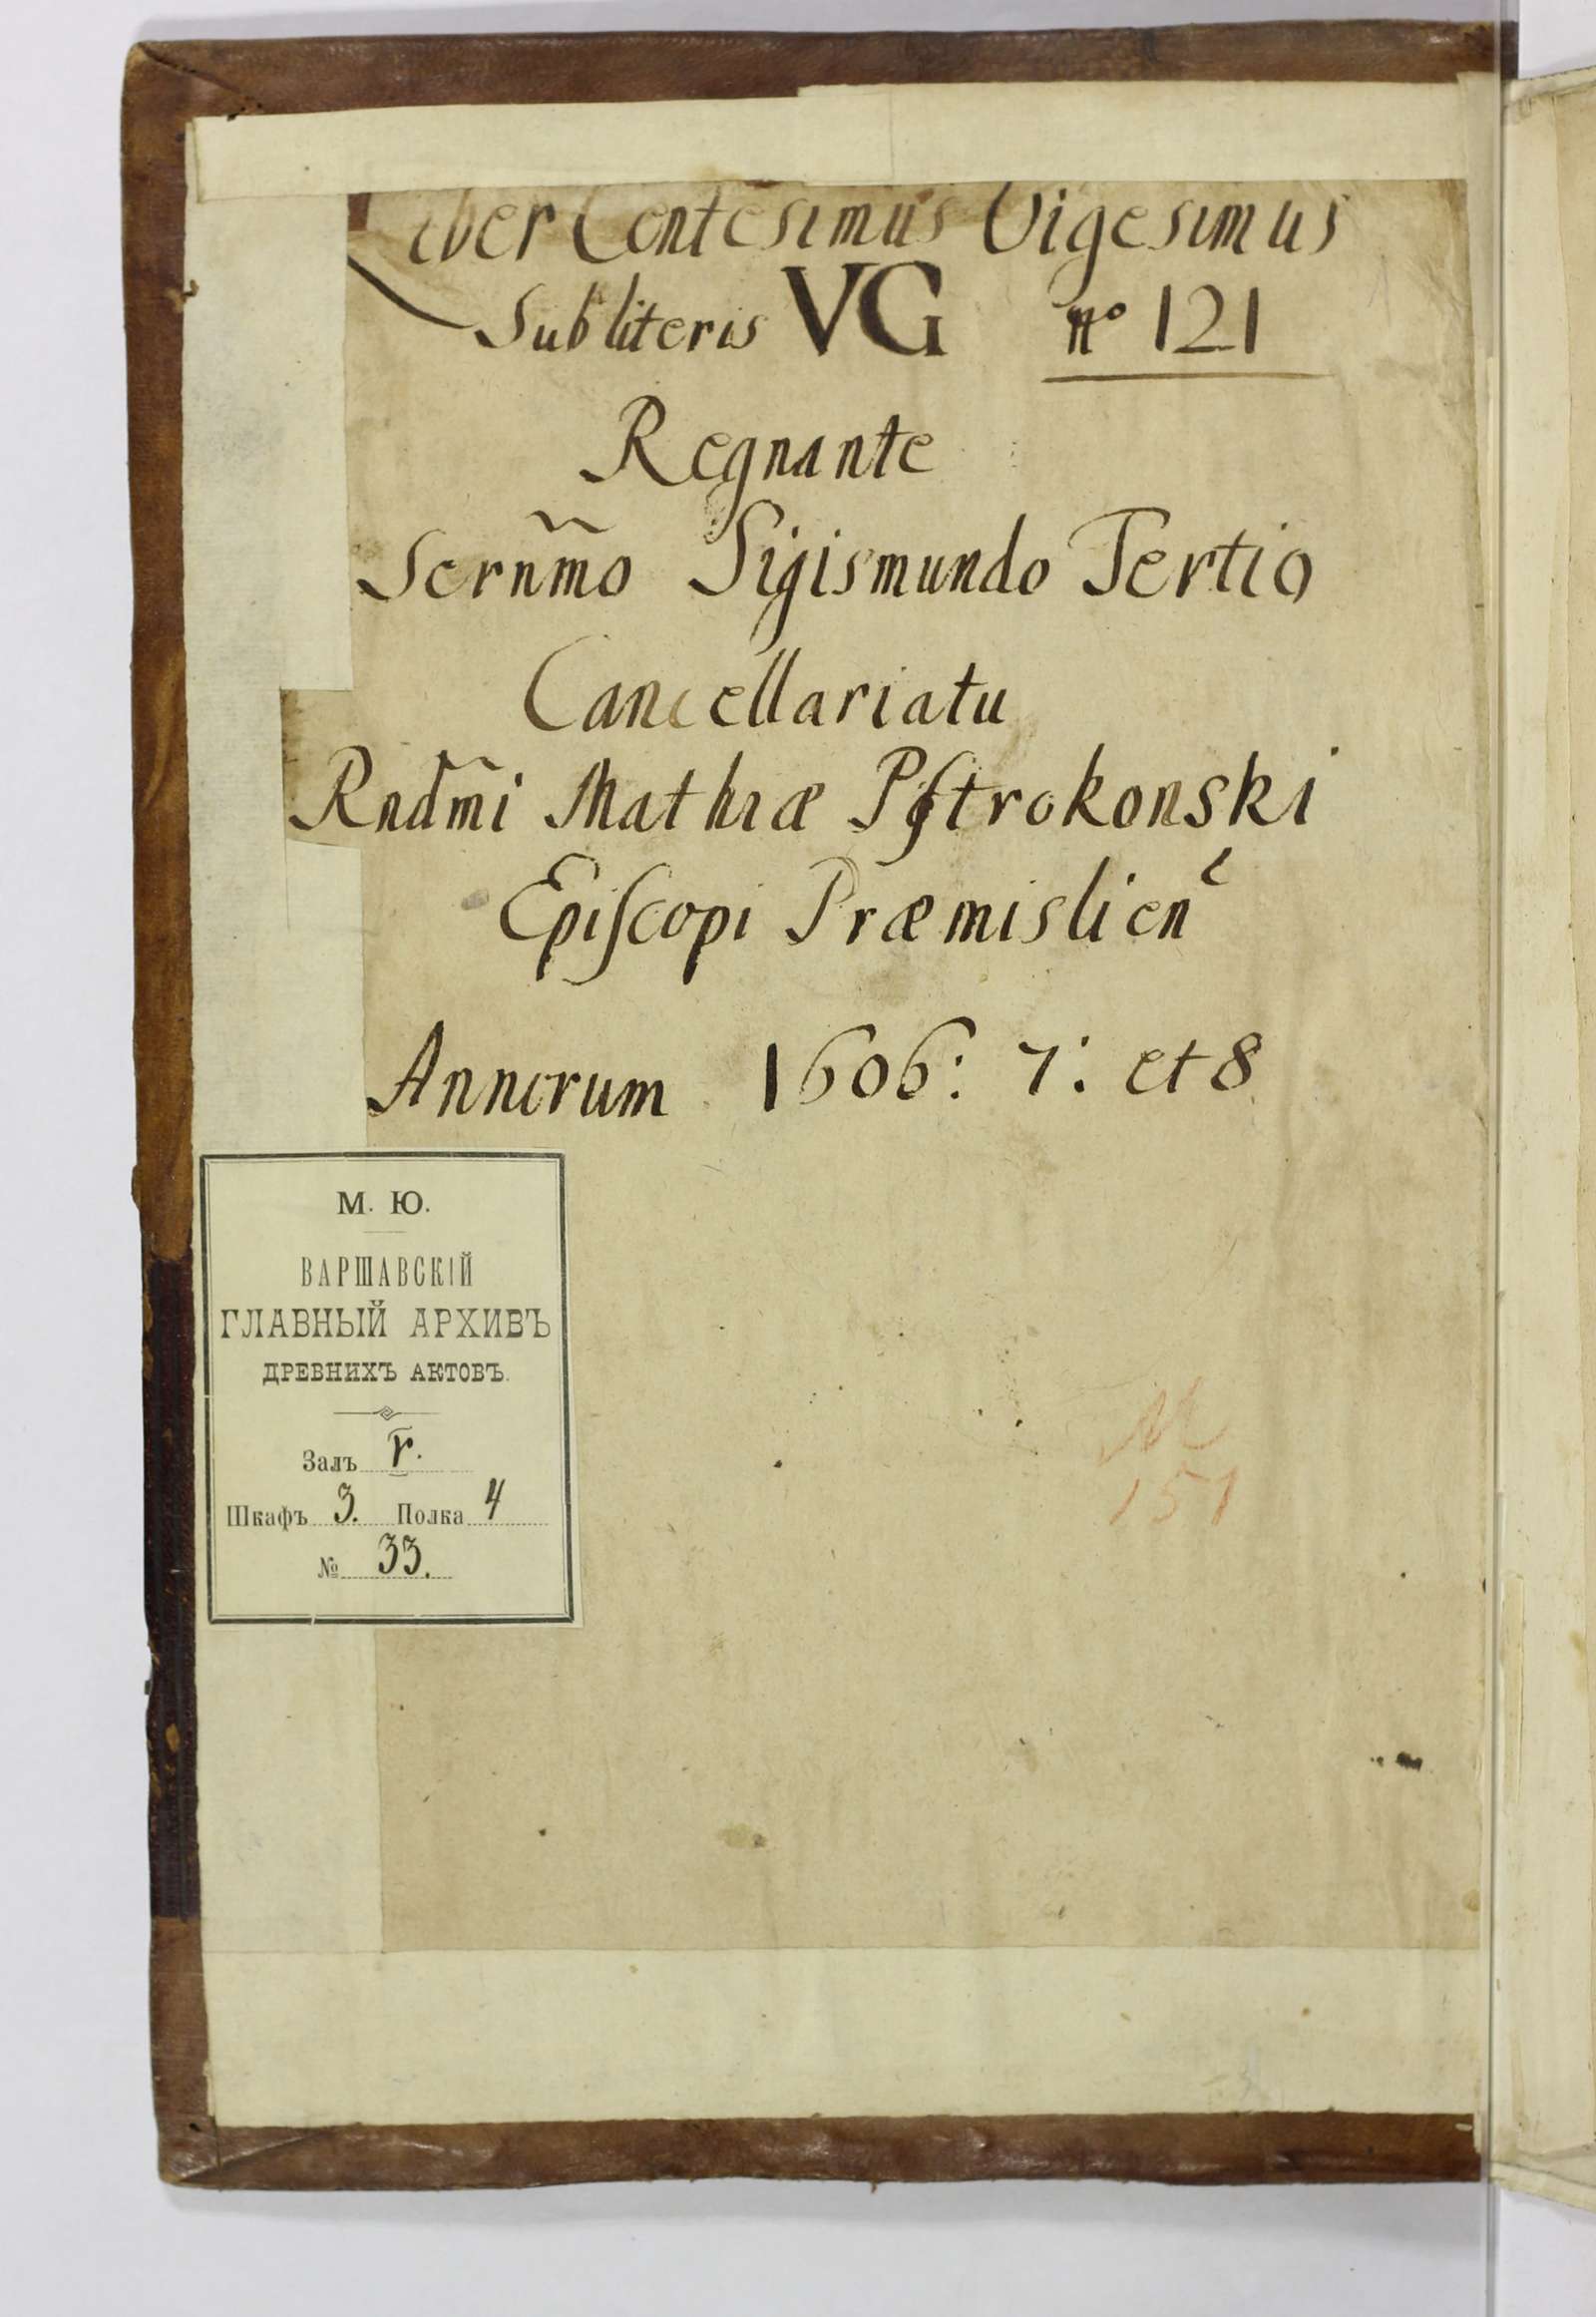 iber Centesimus Vigesimus
Sub literis VG nº 121
Regnante
Serñmo Sigismundo Tertio
Cancellariatu
Rnd̃mi Mathiæ Pstrokonski
Episcopi Præmislien
Annorum 1606: 7: et 8
М. Ю.
ВАРШАВСКІЙ
ГЛАВНЫЙ АРХИВЪ
ДРЕВНИХЪ АКТОВЪ.
Залъ V.
Шкафъ 3. Полка 4
№ 33.
M
151